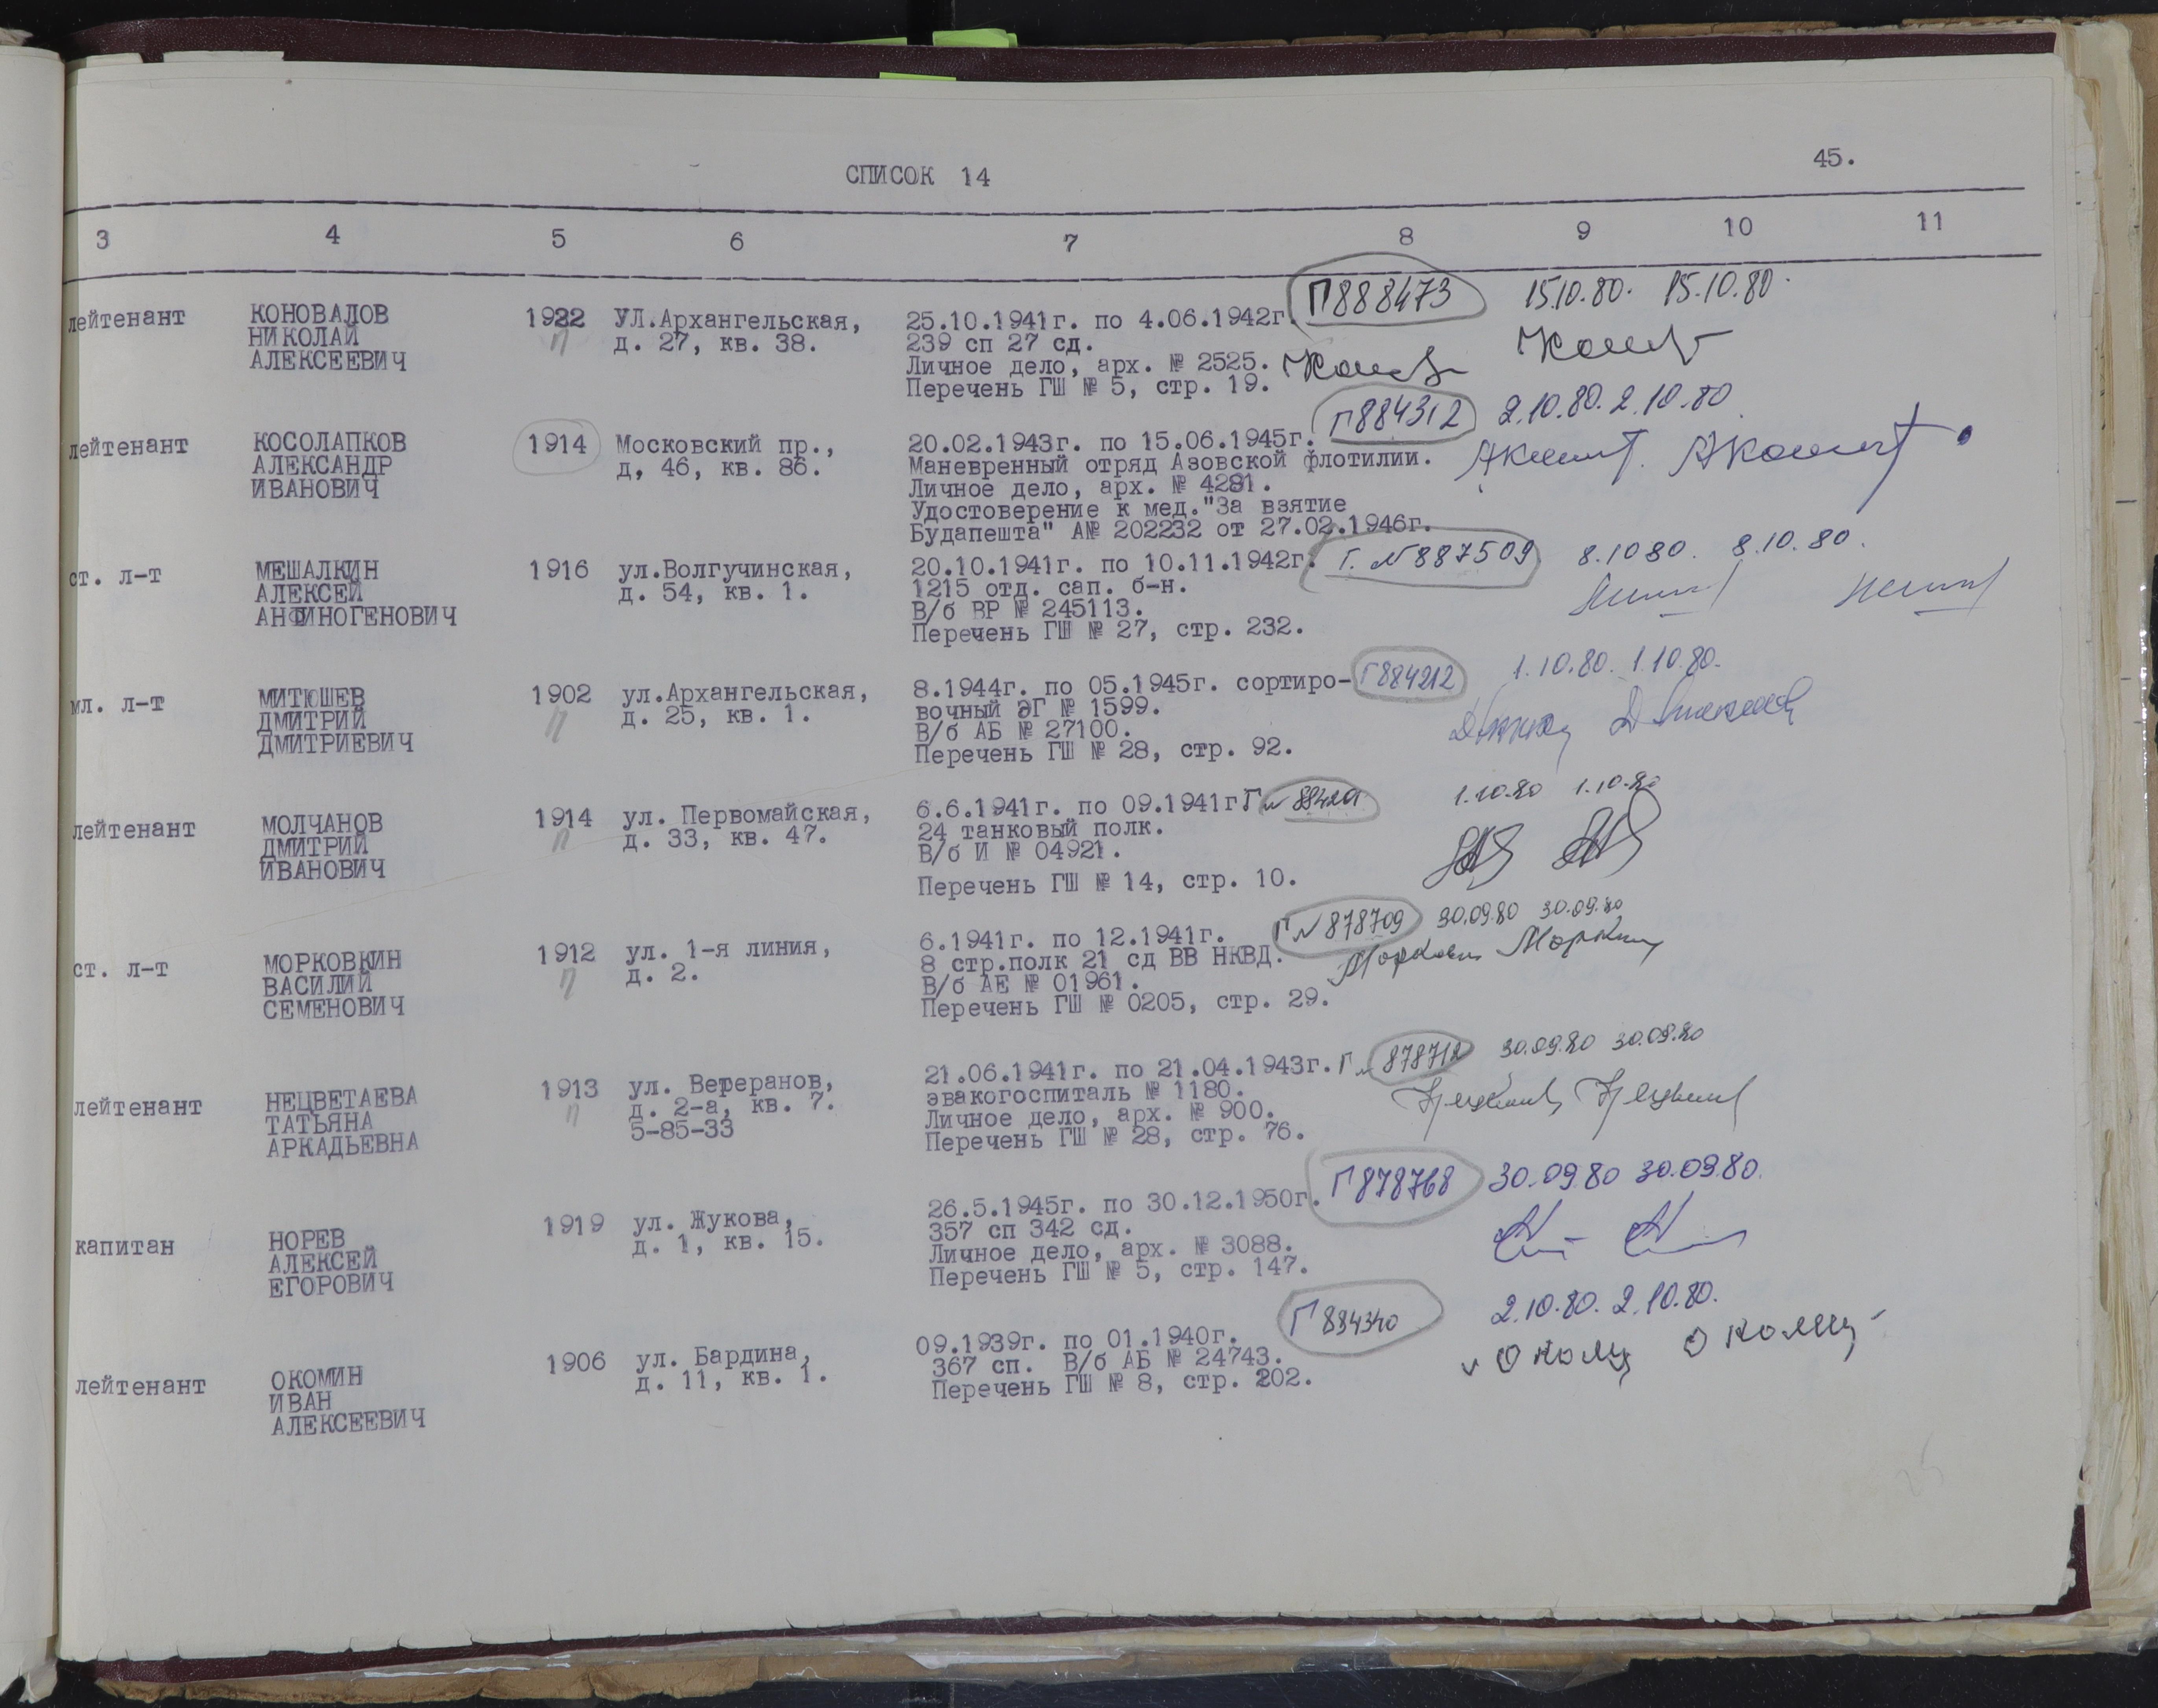 СПИСОК 14
45.
3 4 5 6 7 8 9 10 11
лейтенант
КОНОВАЛОВ
НИКОЛАЙ
АЛЕКСЕЕВИЧ
1922
п
УЛ.Архангельская,
д. 27, кв. 38.
25.10.1941г. по 4.06.1942г.
239 сп 27 сд.
Личное дело, арх. № 2525.
Перечень ГШ № 5, стр. 19.
П888473
15.10.80. 15.10.80.
лейтенант
КОСОЛАПКОВ
АЛЕКСАНДР
ИВАНОВИЧ
1914
Московский пр.,
д, 46, кв. 86.
20.02.1943г. по 15.06.1945г.
Маневренный отряд Азовской флотилии.
Личное дело, арх. № 4281.
Удостоверение к мед."За взятие
Будапешта" А№ 202232 от 27.02.1946г.
Г884312
2.10.80. 2.10.80
ст. л-т
МЕШАЛКИН
АЛЕКСЕЙ
АНФИНОГЕНОВИЧ
1916
ул.Волгучинская,
д. 54, кв. 1.
20.10.1941г. по 10.11.1942г.
1215 отд. сап. б-н.
В/б ВР № 245113.
Перечень ГШ № 27, стр. 232.
Г. N887509
8.10 80. 8.10.80.
мл. л-т
МИТЮШЕВ
ДМИТРИЙ
ДМИТРИЕВИЧ
1902
п
ул.Архангельская,
д. 25, кв. 1.
8.1944г. по 05.1945г. сортиро-
вочный ЭГ № 1599.
В/б АБ № 27100.
Перечень ГШ № 28, стр. 92.
Г884212
1.10.80. 1.10.80.
лейтенант
МОЛЧАНОВ
ДМИТРИЙ
ИВАНОВИЧ
1914
п
ул. Первомайская,
д. 33, кв. 47.
6.6.1941г. по 09.1941г
24 танковый полк.
В/б И № 04921.
Перечень ГШ № 14, стр. 10.
1.10.80 1.10.80
ст. л-т
МОРКОВКИН
ВАСИЛИЙ
СЕМЕНОВИЧ
1912
п
ул. 1-я линия,
д. 2.
6.1941г. по 12.1941г.
8 стр.полк 21 сд ВВ НКВД.
В/б АЕ № 01961.
Перечень ГШ № 0205, стр. 29.
Г N878709
30.09.80 30.09.80
лейтенант
НЕЦВЕТАЕВА
ТАТЬЯНА
АРКАДЬЕВНА
1913
п
ул. Ветеранов,
д. 2-а, кв. 7.
5-85-33
21.06.1941г. по 21.04.1943г.
эвакогоспиталь № 1180.
Личное дело, арх. № 900.
Перечень ГШ № 28, стр. 76.
Г N 878712
30.09.80 30.09.80
капитан
НОРЕВ
АЛЕКСЕЙ
ЕГОРОВИЧ
1919
ул. Жукова,
д. 1, кв. 15.
26.5.1945г. по 30.12.1950г.
357 сп 342 сд.
Личное дело, арх. № 3088.
Перечень ГШ № 5, стр. 147.
Г878768
30.09.80 30.09.80.
лейтенант
ОКОМИН
ИВАН
АЛЕКСЕЕВИЧ
1906
ул. Бардина,
д. 11, кв. 1.
09.1939г. по 01.1940г.
367 сп. В/б АБ № 24743.
Перечень ГШ № 8, стр. 202.
Г884340
2.10.80. 2.10.80.